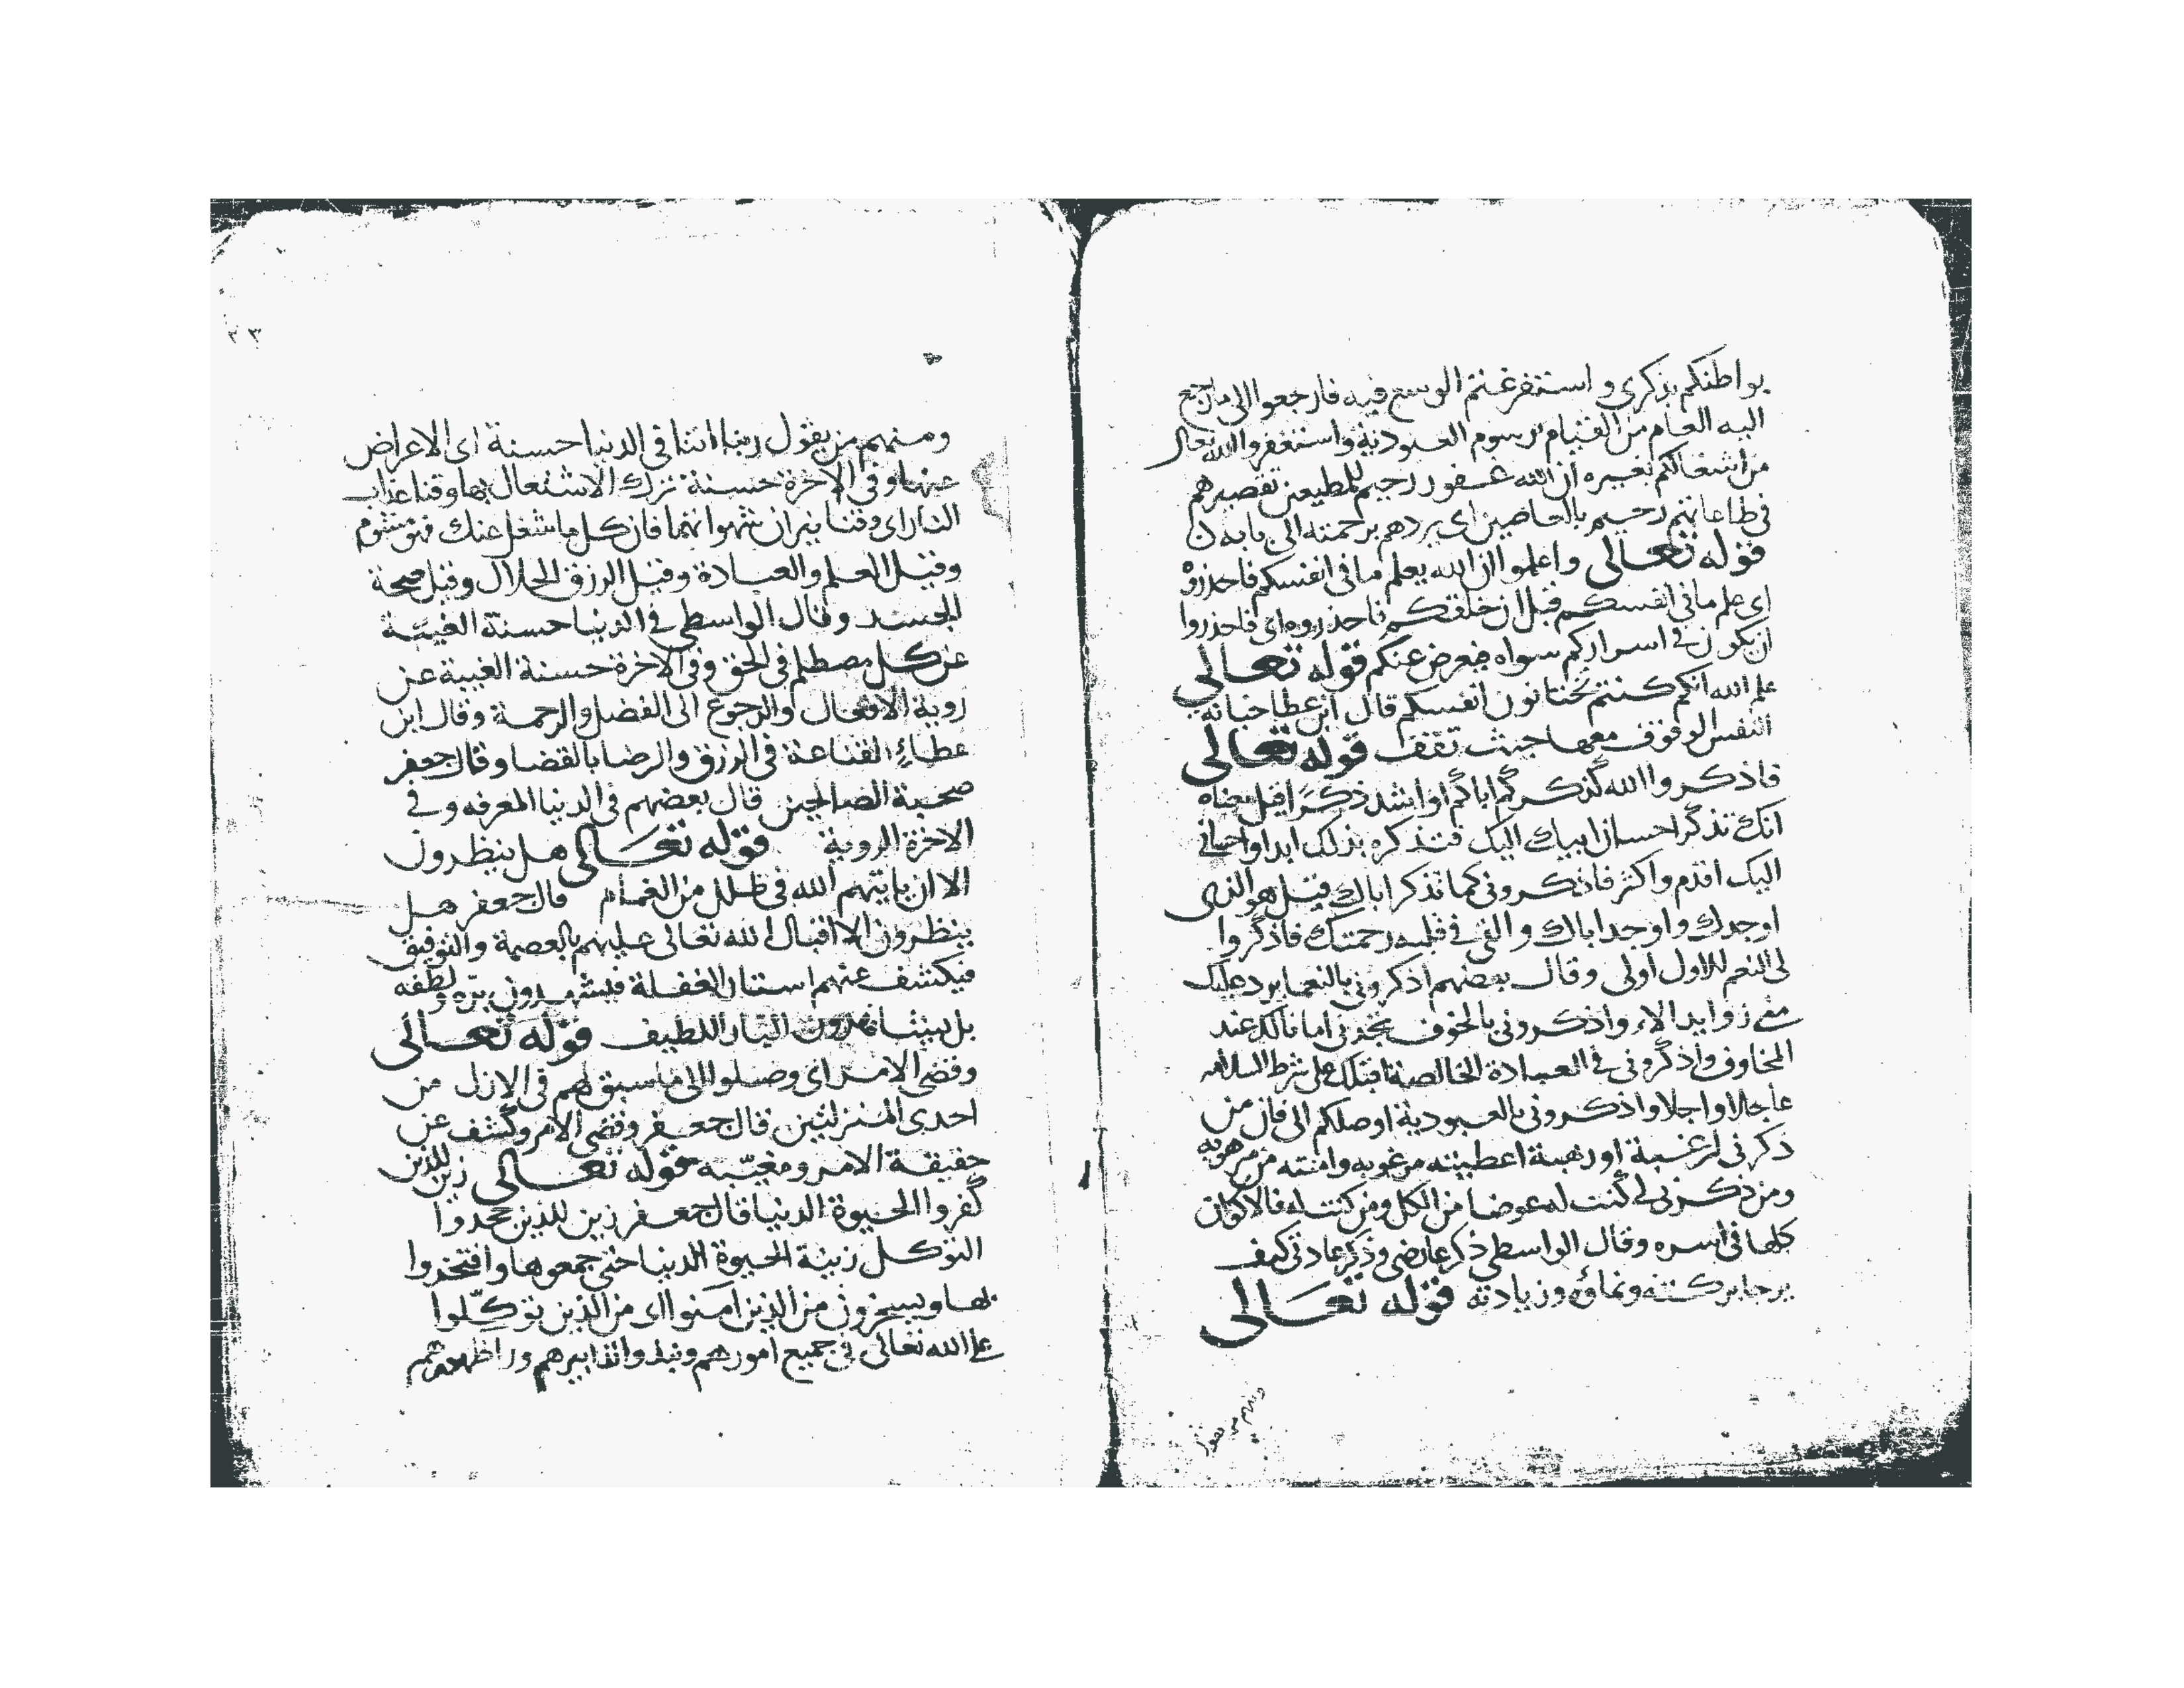 بواطنكم بذكرى و استفرغتم الوسع فيه فارجعوا الى ما رجع
اليه العام من القيام برسوم العبودية واستغفروا الله تعالى
من اشغالكم بغيره ان الله غفور رحيم للمطيعين تقصيرهم
فى طاعاتهم رحيم بالعاصين اى يردهم برحمته الى بابه ن
قوله تعالى واعلموا ان الله يعلم ما فى انفسكم فاحذروه
اى علم ما فى انفسكم قبل ان خلقكم فاحذروه اى فاحذروا
ان يكون فى اسراركم سواه فيعرض عنكم قوله تعالى
علم الله انكم كنتم تختانون انفسكم قال ابن عطا خيانة
النفس الوقوف معها حيث تقف قوله تعالى
فاذكروا الله كذكركم اباءكم او اشد ذكرا قيل معناه
انك تذكر احسان ابيك اليك فتذكره بذلك ابدا واحسانى
اليك اقدم واكثر فاذكرونى كما تذكر اباك قيل هو الذى
اوجدك و اوجد اباك و القى فى قلبه رحمتك فاذكروا
لى النعم للاول اولى وقال بعضهم اذكرونى بالنعما يرد عليك
منى زوايد الالاء واذكرونى بالخوف تجدنى امانا لك عند
المخاوف واذكرونى فى العبادة الخالصة اقبلك على شرط السلامه
عاجلا واجلا واذكرونى بالعبودية اوصلكم الى فان من
ذكرنى لرغبة او رهبة اعطيته مرغوبه وامنته من مرهوبه
ومن ذكرنى لى كنت له عوضا من الكل ومن كنت له فالاكوان
كلها فى اسره وقال الواسطى ذكر عارضى وذكر عادتى كيف
يرجا بركته ونماؤه وزيادته قوله تعالى
ومنهم من يقول
٢٣
ومنهم من يقول ربنا اتنا فى الدنيا حسنة اى الاعراض
عنها وفى الاخرة حسنة ترك الاشتغال بها وقنا عذاب
النار اى وقنا نيران شهواتنا فان كل ما شغل عنك فهو مشوم
وقيل العلم والعبادة وقيل الرزق الحلال وقيل صحة
الجسد وقال الواسطى فى الدنيا حسنة الغيبة
عن كل مصطلم فى الحق وفى الاخرة حسنة الغيبة عن
روية الافعال والرجوع الى الفضل والرحمة وقال ابن
عطاء القناعة فى الرزق والرضا بالقضا وقال جعفر
صحبة الصالحين قال بعضهم فى الدنيا المعرفه وفى
الاخرة الروية قوله تعالى هل ينظرون
الا ان ياتيهم الله فى ظلل من الغمام قال جعفر هل
ينظرون الا اقبال الله تعالى عليهم بالعصمة والتوفيق
فيكشف عنهم استار الغفلة فيشهدون بره و لطفه
بل يشاهدون البار اللطيف قوله تعالى
وقضى الامر اى وصلوا الى ما سبق لهم فى الازل من
احدى المنزلتين قال جعفر وقضى الامر وكشف عن
حقيقة الامر ومغيبه قوله تعالى زين للذين
كفروا الحيوة الدنيا قال جعفر زين للذين جحدوا
التوكل زينة الحيوة الدنيا حتى جمعوها وافتخروا
بها ويسخرون من الذين امنوا اى من الذين توكلوا
على الله تعالى فى جميع امورهم ونبذوا تدابيرهم ورا ظهورهم